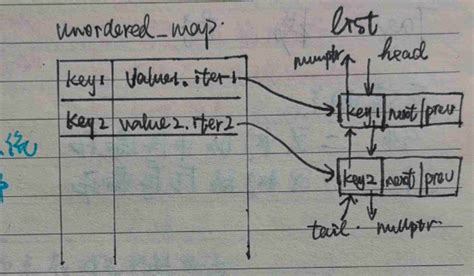 unordered_map.
list
nullptr
head
key1 value1.iter1
key1 next prev
key2 value2.iter2
key2 next prev
tail. nullptr